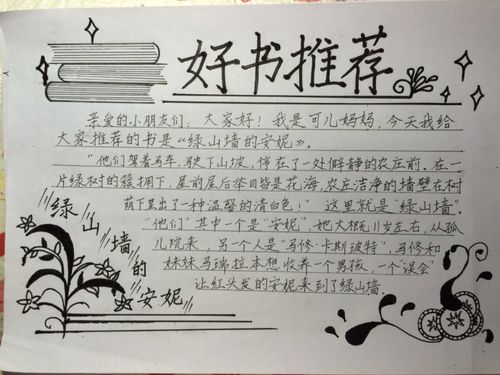 好书推荐
亲爱的小朋友们：大家好！我是可儿妈妈，今天我给
大家推荐的书是《绿山墙的安妮》。
“他们驾着马车，驶下山坡，停在了一处僻静的农庄前。在一
片绿树的簇拥下，屋前屋后举目皆是花海，农庄洁净的墙壁在树
荫下显出了一种温馨的清白色！” 这里就是“绿山墙”。
“他们”其中一个是“安妮”，她大概11岁左右，从孤
儿院来，另一个人是“马修·卡斯波特”，马修和
妹妹马瑞拉本想收养一个男孩，一个“误会”
让红头发的安妮来到了绿山墙
绿山墙的安妮